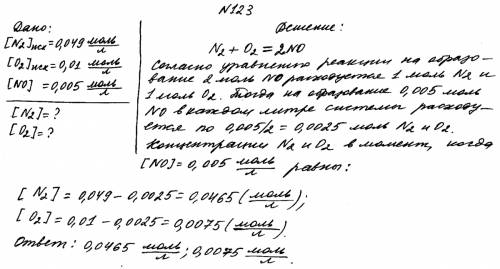 N123
Дано:
[N2]исх = 0,049 моль/л
[O2]исх = 0,01 моль/л
[NO] = 0,005 моль/л
[N2] = ?
[O2] = ?
Решение:
N2 + O2 = 2NO
Согласно уравнению реакции на образо-
вание 2 моль NO расходуется 1 моль N2 и
1 моль O2. Тогда на образование 0,005 моль
NO в каждом литре системы расходу-
ется по 0,005/2 = 0,0025 моль N2 и O2.
Концентрации N2 и O2 в момент, когда
[NO] = 0,005 моль/л равны:
[N2] = 0,049 – 0,0025 = 0,0465 (моль/л);
[O2] = 0,01 – 0,0025 = 0,0075 (моль/л).
Ответ: 0,0465 моль/л; 0,0075 моль/л.